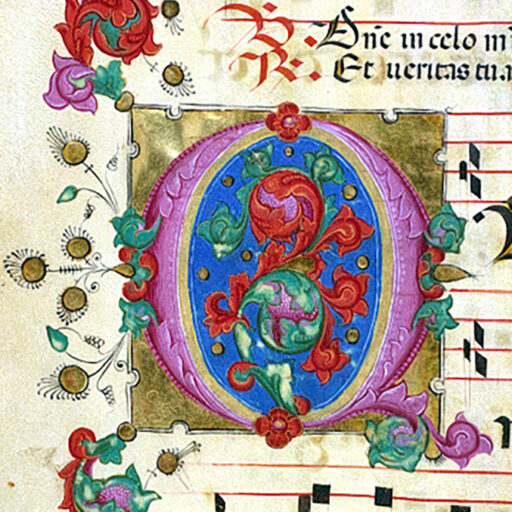 V. Dn̄e in celo mi
R. Et ueritas tua
Q